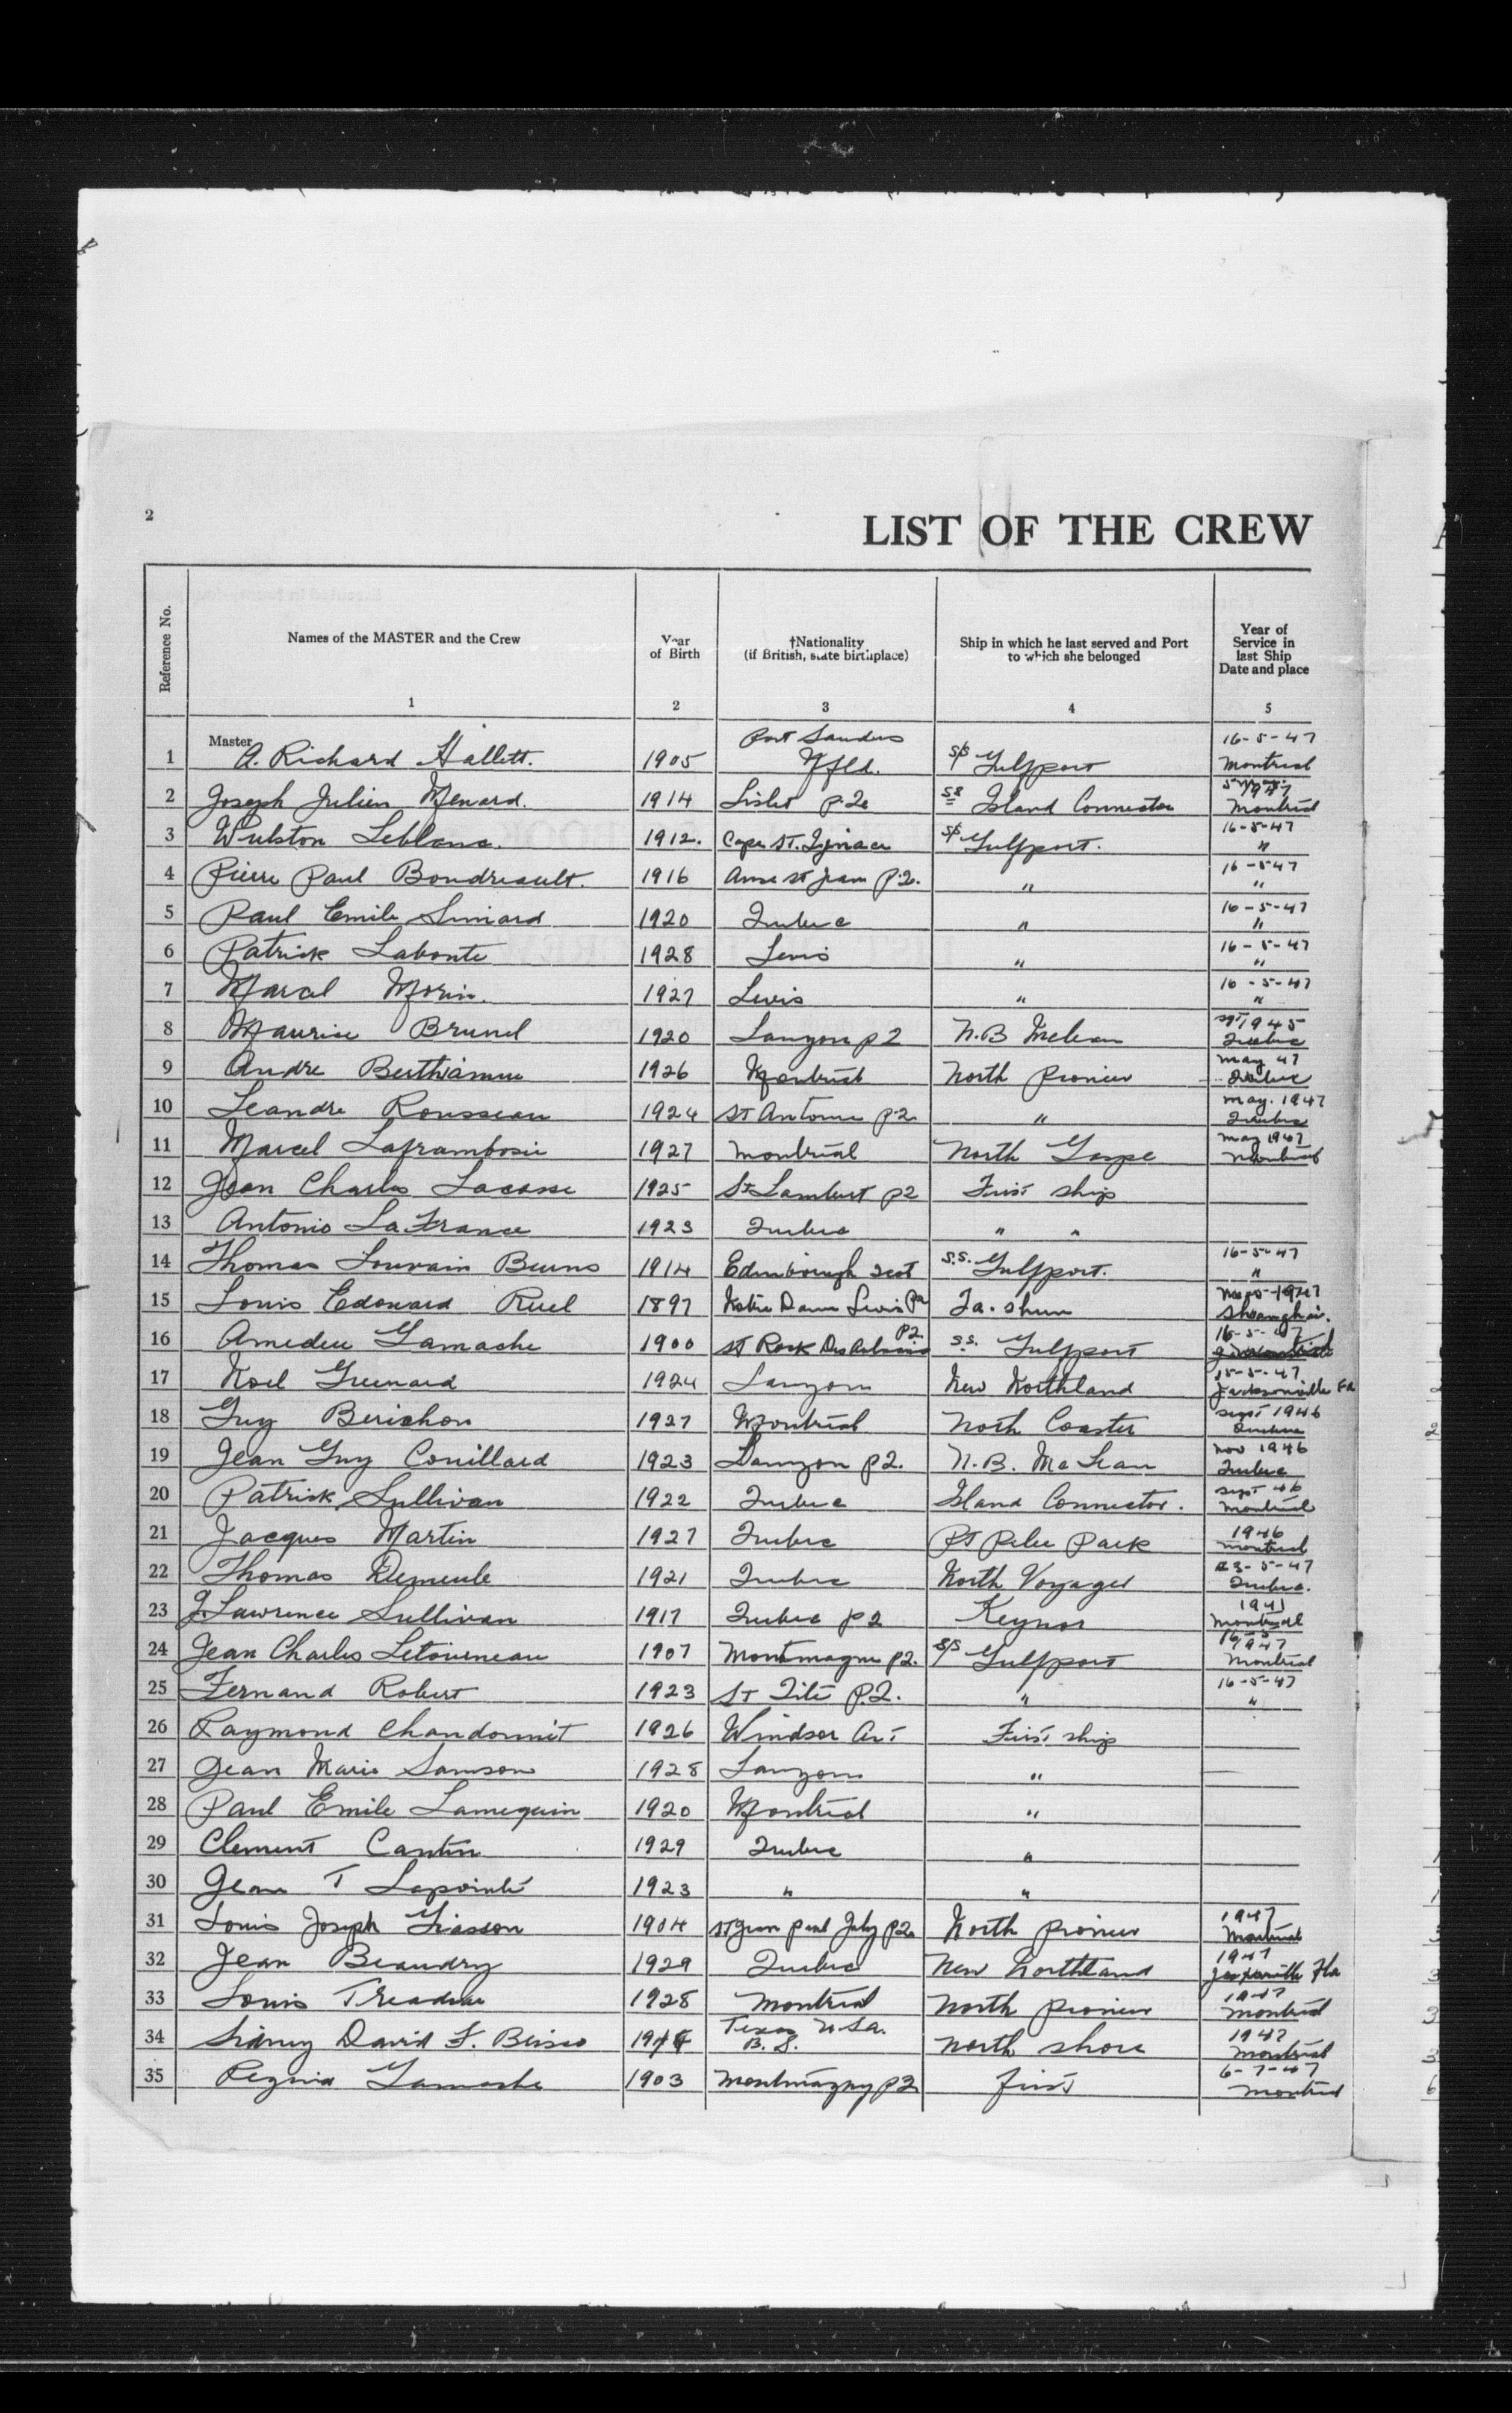 2
LIST OF THE CREW
Reference No.
Names of the MASTER and the Crew
Year of Birth
†Nationality (if British, state birthplace)
Ship in which he last served and Port to which she belonged
Year of Service in last Ship Date and place
1 2 3 4 5
1 Master A. Richard Hallett. 1905 Port Saunders Nfld. s/s Gulfport 16-5-47 Montreal
2 Joseph Julien Menard. 1914 Lislet P.Q. ss Island Connector Montreal
3 Wulston Leblanc. 1912. Cape St. Ignace s/s Gulfport. 16-5-47 "
4 Pierre Paul Boudreault. 1916 Anse St Jean P.Q. " 16-5-47 "
5 Paul Emile Simard 1920 Quebec " 16-5-47 "
6 Patrick Labonte 1928 Levis " 16-5-47 "
7 Marcel Morin. 1927 Levis " 16-5-47 "
8 Maurice Brunel 1920 Lauzon P2 N.B Mclean 1945 Quebec
9 Andre Berthiaume 1926 Montreal North Pionier May 47 Quebec
10 Leandre Rousseau 1924 St Antoine P.2 " May. 1947 Quebec
11 Marcel Laframboise 1927 Montreal North Gaspe May 1947 Montreal
12 Jean Charles Lacasse 1925 St Lambert P2 First ship
13 Antonio LaFrance 1923 Quebec " "
14 Thomas Louvain Burns 1914 Edinborough Scot s.s. Gulfport. 16-5-47 "
15 Louis Edouard Ruel 1897 Notre Dame Levis PQ Ta. shun Shanghai.
16 Amedee Gamache 1900 St Rock Des P2 s.s. Gulfport 16-5-47
17 Noel Guenard 1924 Lauzon New Northland 15-5-47 Jacksonville Fa
18 Guy Berichon 1927 Montreal North Coaster Sept 1946 Quebec
19 Jean Guy Couillard 1923 Lauzon P2. N.B. McLean Nov 1946 Quebec
20 Patrick Sullivan 1922 Quebec Island Connector. Sept 46 Montreal
21 Jacques Martin 1927 Quebec Pt Pelee Park 1946 Montreal
22 Thomas Demeule 1921 Quebec North Voyager 23-5-47 Quebec.
23 J. Lawrence Sullivan 1917 Quebec P2 Keynor 1941 Montreal
24 Jean Charles Letourneau 1907 Montmagne P2. s/s Gulfport 1947 Montreal
25 Fernand Robert 1923 St Tite P.2. " 16-5-47 "
26 Raymond Chandonnit 1926 Windsor Ont First ship
27 Jean Marie Samson 1928 Lauzon "
28 Paul Emile Lamequin 1920 Montreal "
29 Clement Cantin 1929 Quebec "
30 Jean T Lapointe 1923 " "
31 Louis Joseph Giasson 1904 St Jean Port Joly P2 North Pionier 1947 Montreal
32 Jean Beaudry 1929 Quebec New Northland 1947 Fla
33 Louis 1928 Montreal North Pionier 1947 Montreal
34 Sidney David F. Brisco Texas U.S.a. B.S. North Shore 1947 Montreal
35 Gamache 1903 Montmagny P2 first 6-7-47 Montreal